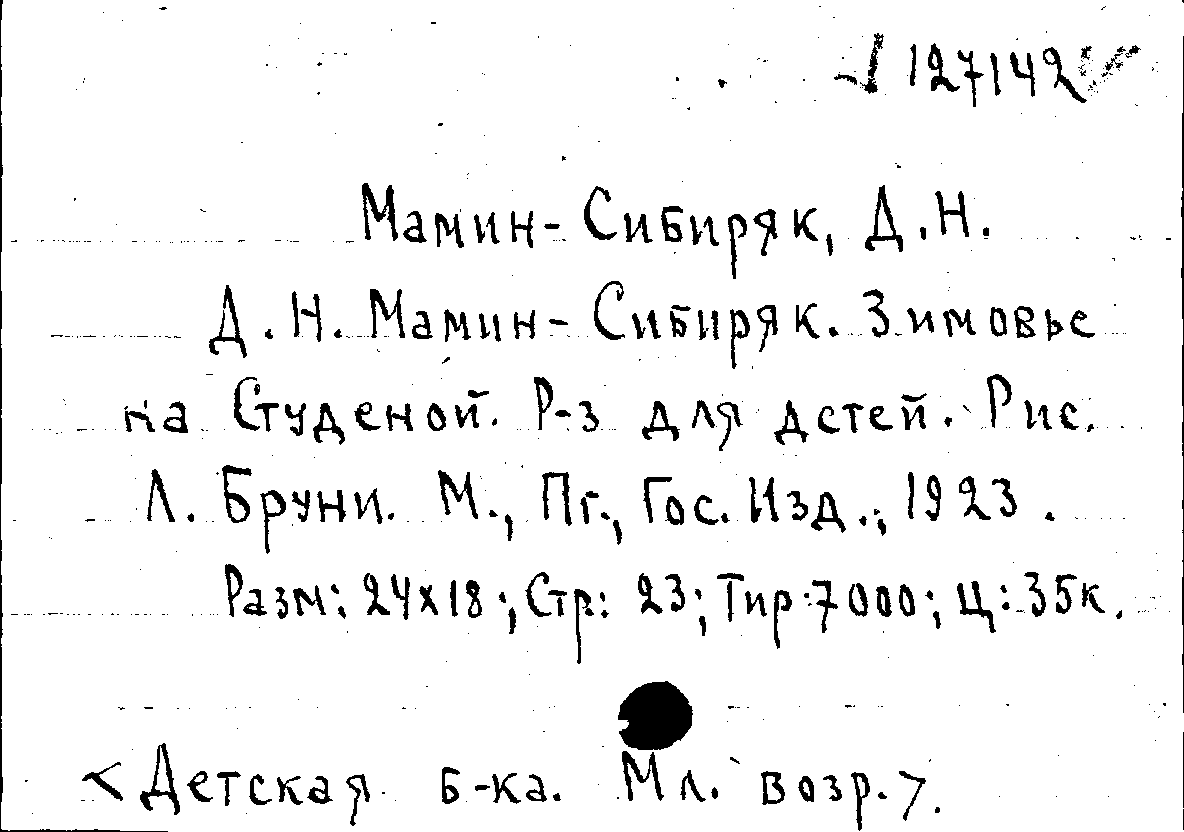 127142
Мамин-Сибиряк, Д.Н.
Д.Н. Мамин-Сибиряк. Зимовье
на Студеной. Р-з для детей. Рис.
Л. Бруни. М., Пг., Гос. Изд., 1923.
Разм: 24х18; Стр: 23; Тир: 7000; Ц: 35к.
<Детская б-ка. Мл. возр.>.